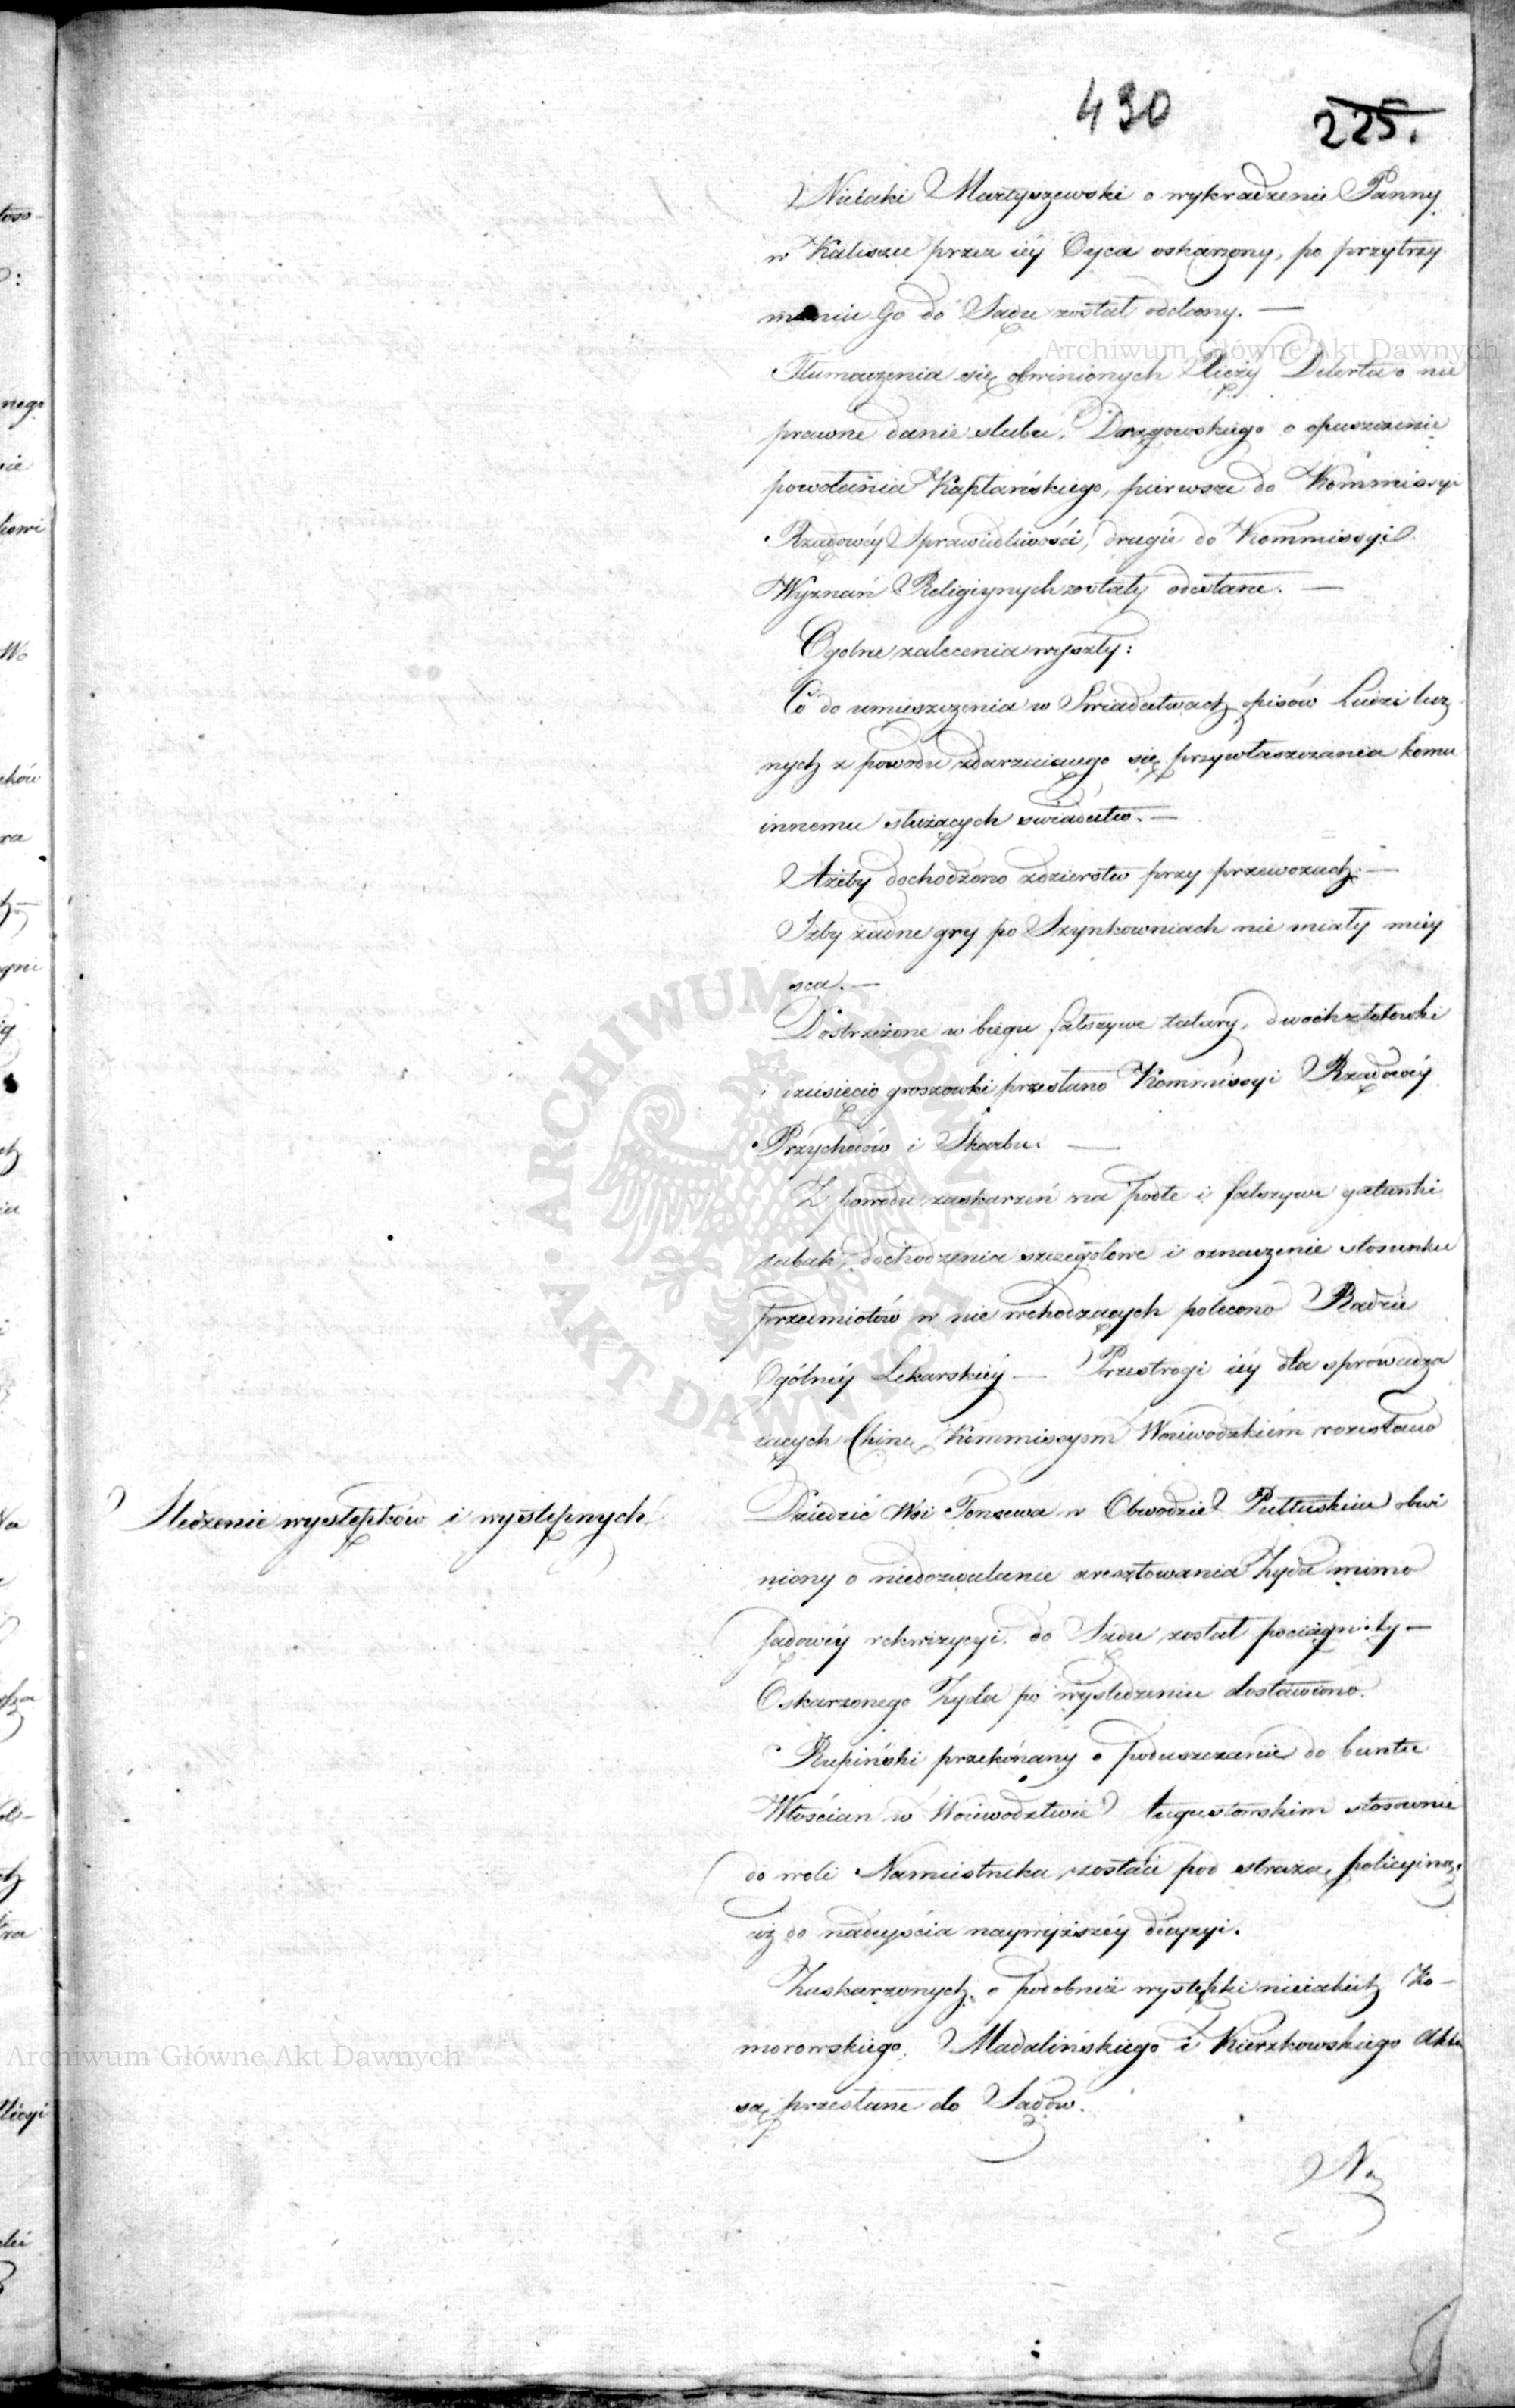 430
225.
Nieiaki Martyszewski o wykradzenie Panny
w Kaliszu przez iéy Oyca oskarzony, po przytrzy
maniu Go do Sądu został oddany. —
Tłumaczenia się obwinionych Xięży Delerta o nie
prawne danie slubu, Drzgowskiego o opuszczenie
powołania Kapłańskiego, pierwsze do Kommissyi
Rządowéy Sprawiedliwości, drugie do Kommissyi
Wyznań Religiynych zostały odesłane. —
Ogolne zalecenia wyszły:
Co do umieszczenia w Swiadectwach opisów Ludzi luz
nych z powodu zdarzaiącego się przywłaszczania komu
innemu służących swiadectw. —
Ażeby dochodzono zdzierstw przy przewozach. —
Iżby żadne gry po Szynkowniach nie miały miey
sca. —
Dostrzeżone w biegu fałszywe talary, dwuchzłotowki
i dziesięcio groszowki przesłano Kommissyi Rządowéy
Przychodów i Skarbu. —
Z powodu zaskarzeń na podłe i fałszywe gatunki
tabak, dochodzenie szczegółowe i oznaczenie stosunku
przedmiotów w nie wchodzących polecono Radzie
Ogólnéy Lekarskiéy — Przestrogi iéy dla sprowadza
iących Chinę Kommissyom Woiewodzkiem rozesłano
Sledzenie występków i występnych.
Dziedzic Wsi w Obwodzie Pułtuskim obwi
niony o niedozwalanie aresztowania Zyda mimo
sądowéy rekwizycyi do Sądu został pociągnięty —
Oskarzonego Zyda po wysledzeniu dostawiono.
Rupiński przekonany o poduszczanie do buntu
Włościan w Woiewodztwie Augustowskim stosownie
do woli Namiestnika, zostaie pod strażą policyiną,
aż do nadeyścia naywyższéy decyzyi.
Zaskarzonych o podobnież występki nieiakich Ko-
morowskiego, Madalińskiego i Kierzkowskiego Akta
są przesłane do Sądów.
Na
Archiwum Główne Akt Dawnych
ARCHIWUM GŁÓWNE AKT DAWNYCH
Archiwum Główne Akt Dawnych